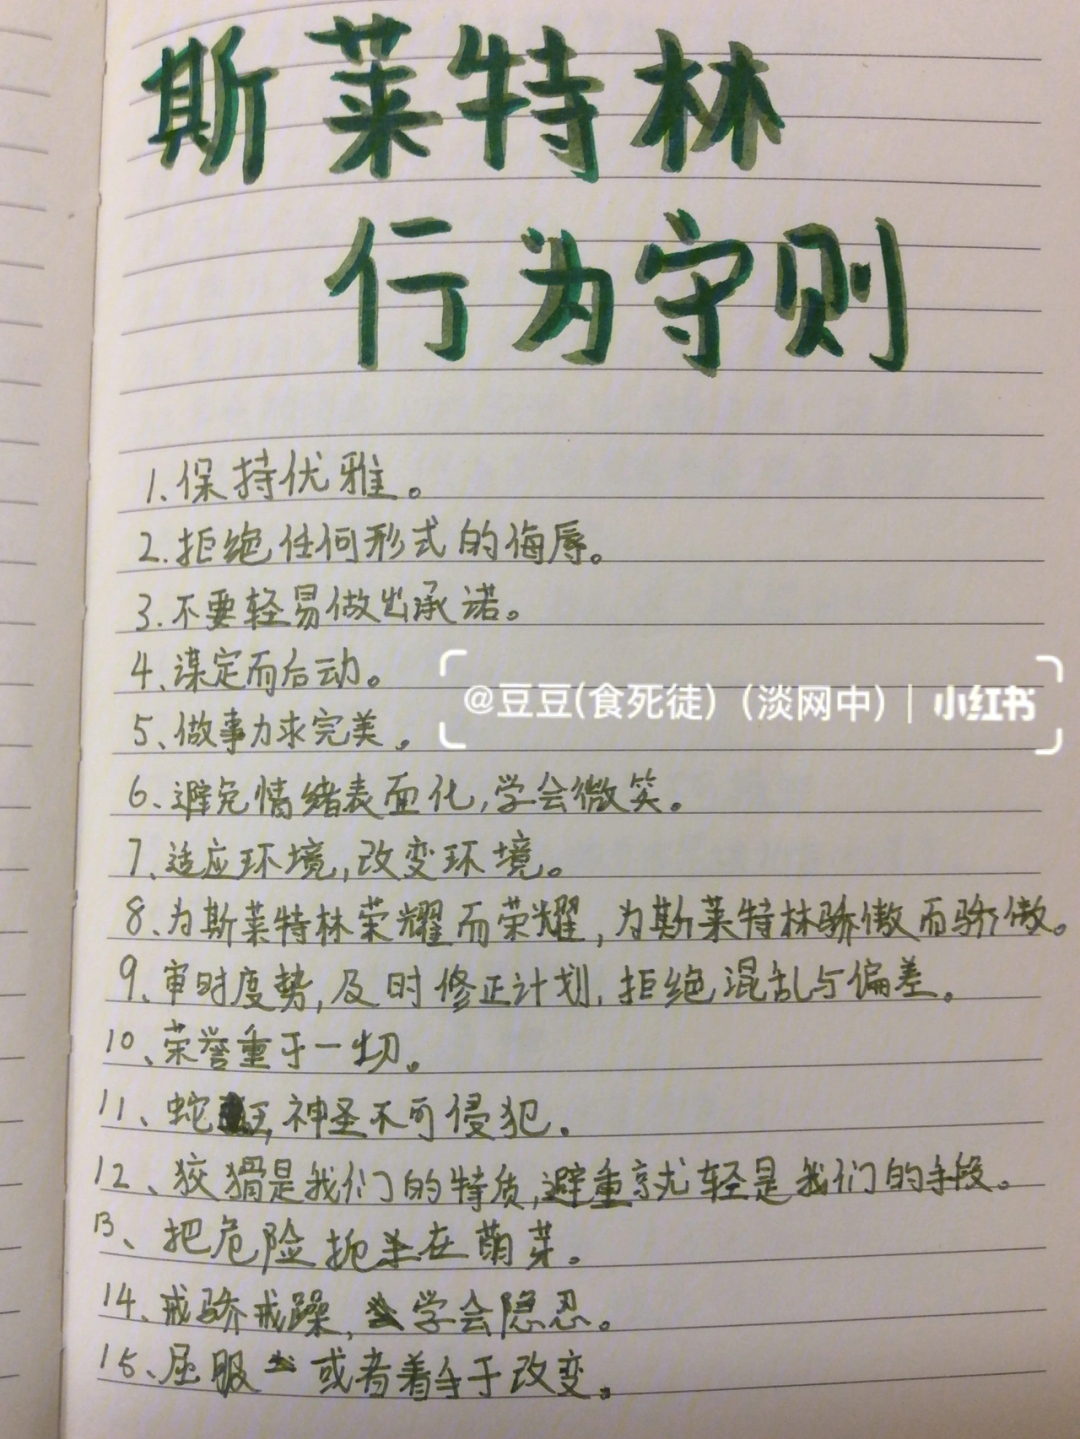 斯莱特林
行为守则
1.保持优雅。
2.拒绝任何形式的侮辱。
3.不要轻易做出承诺。
4、谋定而后动。
@豆豆(食死徒)(淡网中)|小红书
5、做事力求完美。
6、避免情绪表面化,学会微笑。
7、适应环境,改变环境。
8、为斯莱特林荣耀而荣耀,为斯莱特林骄傲而骄傲。
9、审时度势,及时修正计划,拒绝混乱与偏差。
10、荣誉重于一切。
11、蛇王,神圣不可侵犯.
12、狡猾是我们的特质,避重就轻是我们的手段。
13、把危险扼在萌芽。
14、戒骄戒躁,学会隐忍。
15、屈服 或者着手于改变。